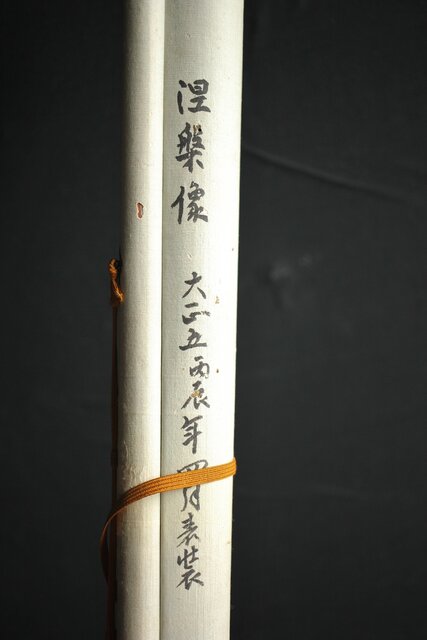 涅槃像 大正五丙辰年四月表装